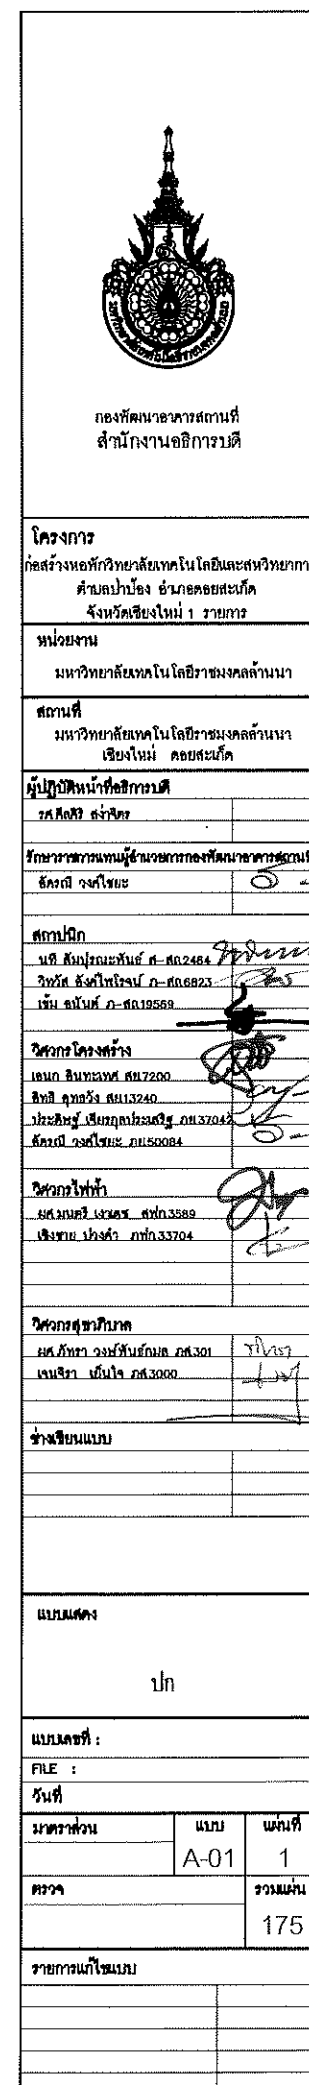 กองพัฒนาอาคารสถานที่
สำนักงานอธิการบดี
โครงการ
ก่อสร้างหอพักวิทยาลัยเทคโนโลยีและสหวิทยากา
ตำบลป่าป้อง อำเภอดอยสะเก็ด
จังหวัดเชียงใหม่ 1 รายการ
หน่วยงาน
มหาวิทยาลัยเทคโนโลยีราชมงคลล้านนา
สถานที่
มหาวิทยาลัยเทคโนโลยีราชมงคลล้านนา
เชียงใหม่ ดอยสะเก็ด
ผู้ปฏิบัติหน้าที่อธิการบดี
รศ.ศีลศิริ สง่าจิตร
รักษาราชการแทนผู้อำนวยการกองพัฒนาอาคารสถานที่
อัครณี วงศ์ไชยะ
สถาปนิก
นที สัมปุรณะพันธ์ ส-สถ2484
วิทวัส อังศ์ไพโรจน์ ภ-สถ6823
เข้ม อนันต์ ภ-สถ19569
วิศวกรโครงสร้าง
เอนก อินทะเทศ สย7200
สิทธิ อุทธวัง สย13240
ประดิษฐ์ เจียรกุลประเสริฐ ภย37042
อัครณี วงศ์ไชยะ ภย50084
วิศวกรไฟฟ้า
ผศ.มนตรี เงาเดช สฟก3589
เชิงชาย ปวงคำ ภฟก33704
วิศวกรสุขาภิบาล
ผศ.ภัทรา วงษ์พันธ์กมล ภส301
เจนจิรา เย็นใจ ภส3000
ช่างเขียนแบบ
แบบแสดง
ปก
แบบเลขที่ :
FILE :
วันที่
มาตราส่วน แบบ แผ่นที่
A-01 1
ตรวจ รวมแผ่น
175
รายการแก้ไขแบบ